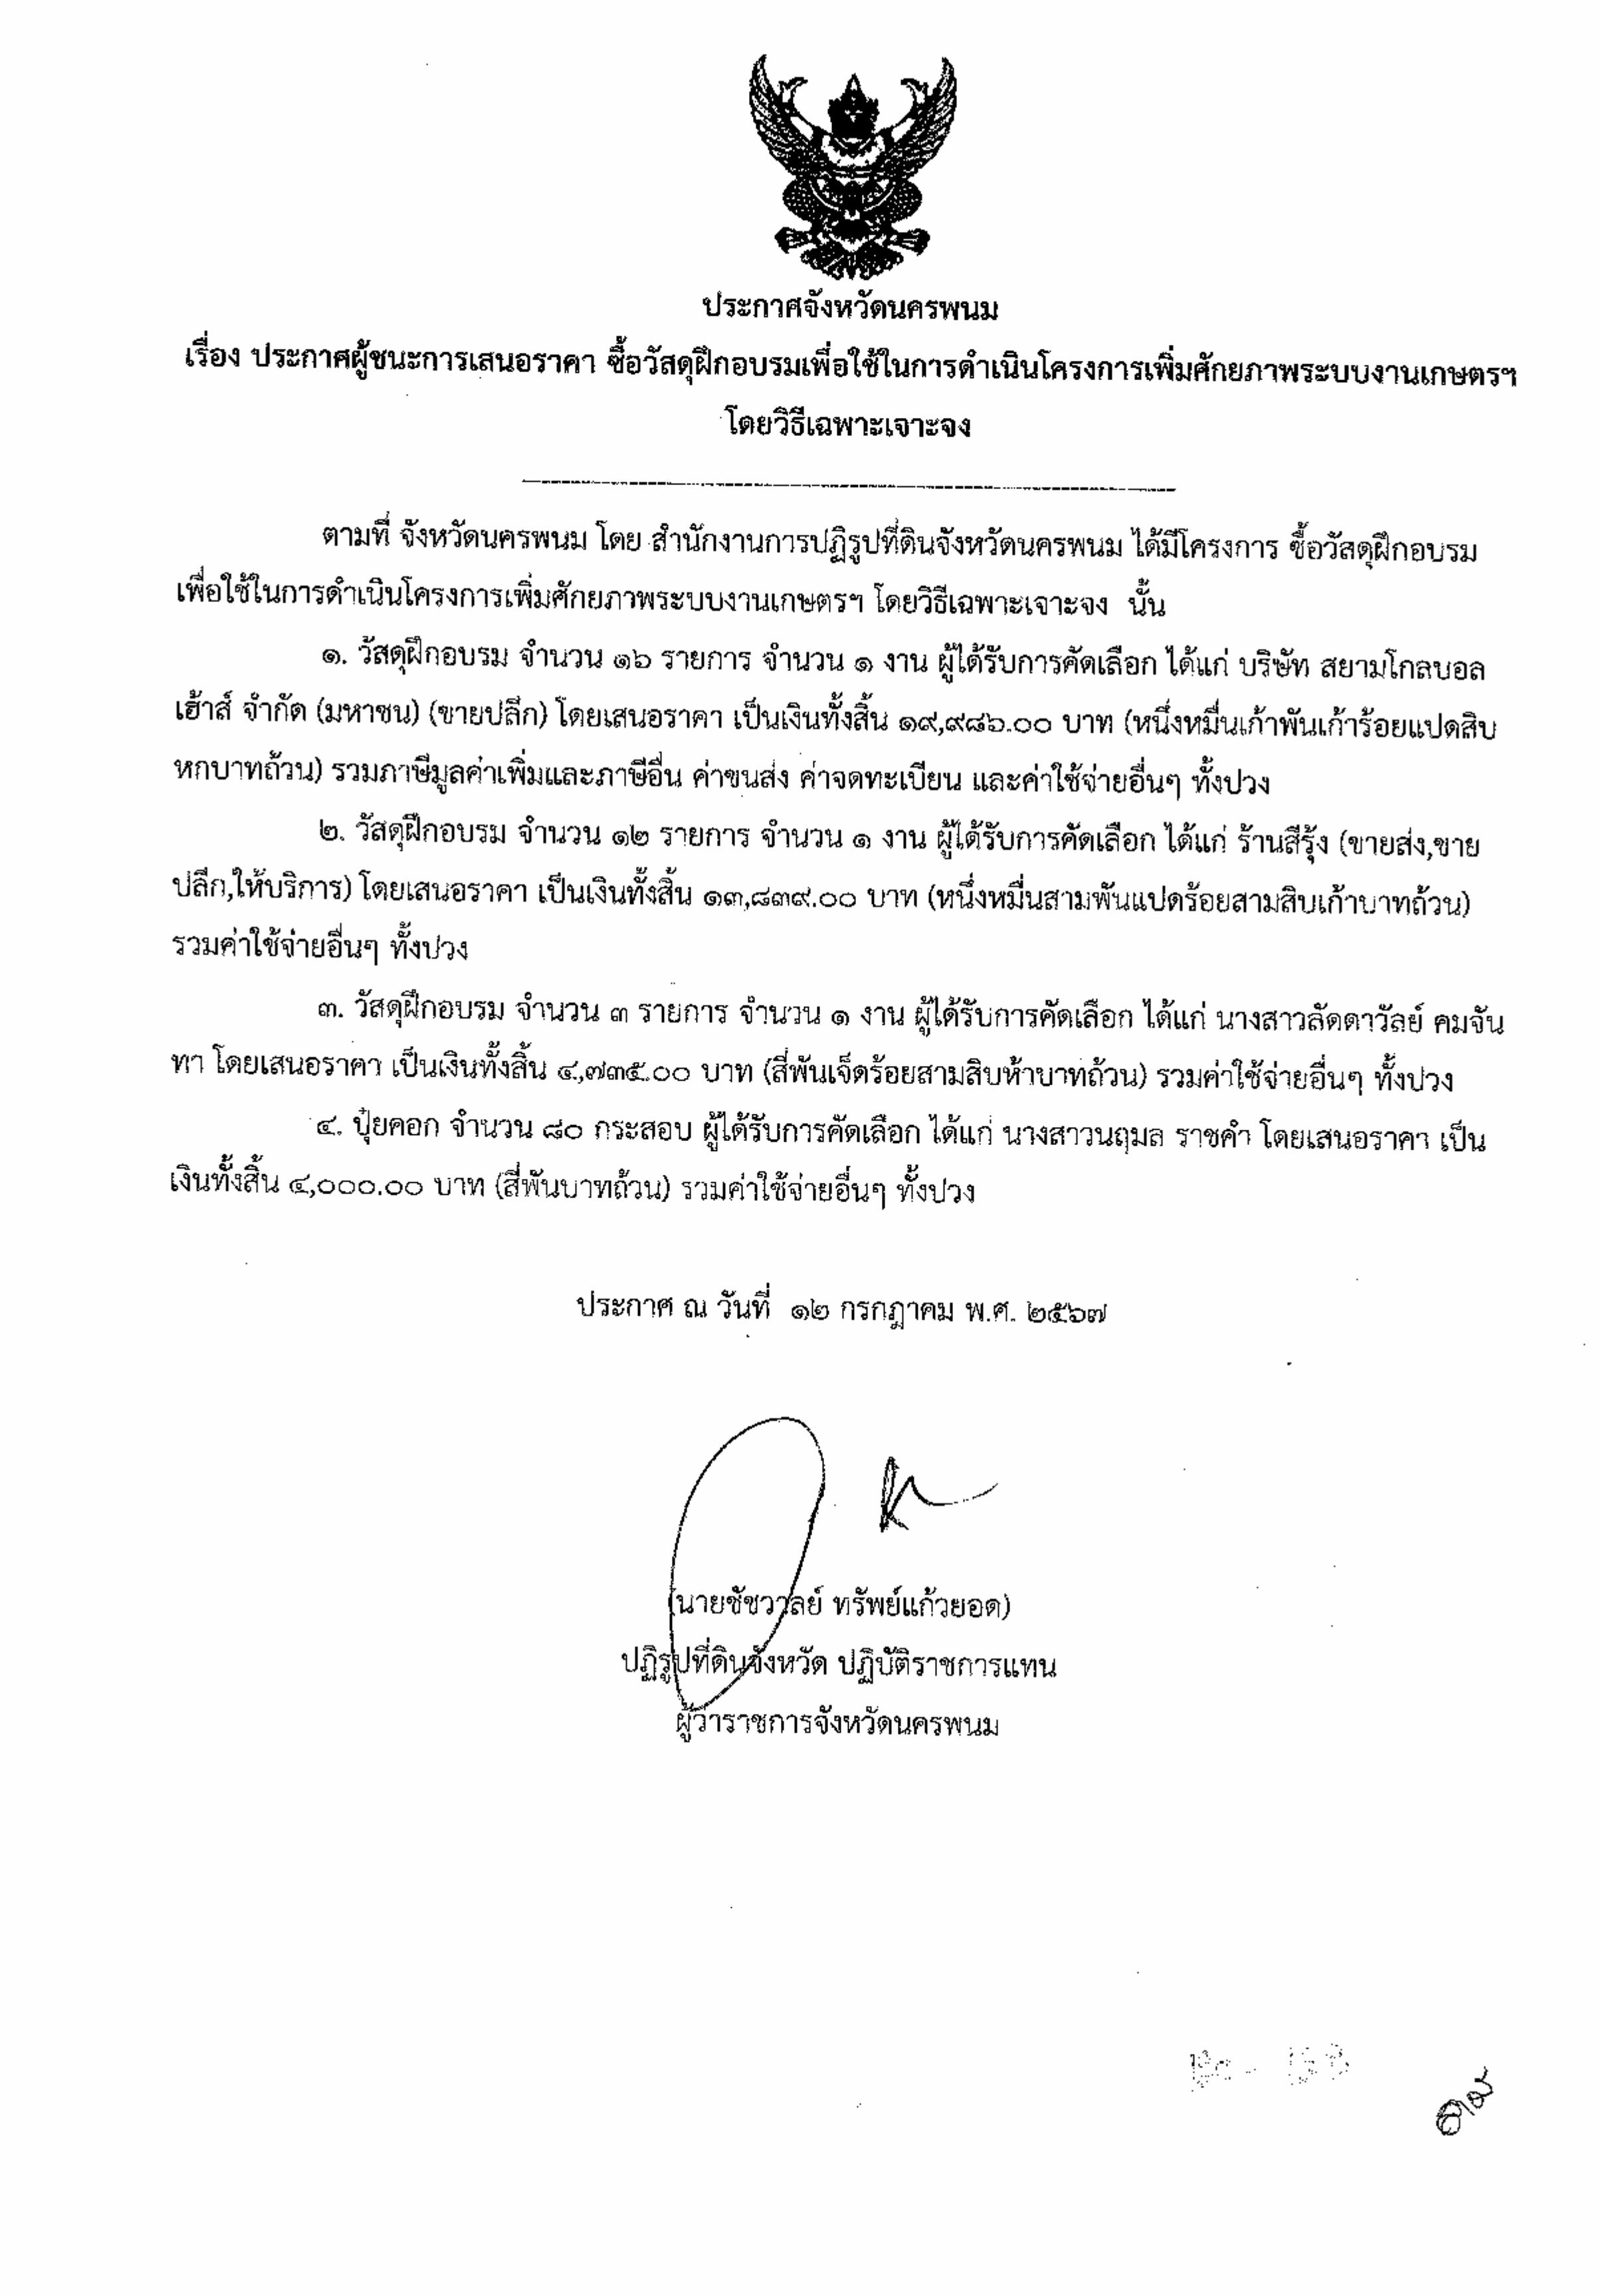 ประกาศจังหวัดนครพนม
เรื่อง ประกาศผู้ชนะการเสนอราคา ซื้อวัสดุฝึกอบรมเพื่อใช้ในการดำเนินโครงการเพิ่มศักยภาพระบบงานเกษตรฯ
โดยวิธีเฉพาะเจาะจง
ตามที่ จังหวัดนครพนม โดย สำนักงานการปฏิรูปที่ดินจังหวัดนครพนม ได้มีโครงการ ซื้อวัสดุฝึกอบรม
เพื่อใช้ในการดำเนินโครงการเพิ่มศักยภาพระบบงานเกษตรฯ โดยวิธีเฉพาะเจาะจง นั้น
๑. วัสดุฝึกอบรม จำนวน ๑๖ รายการ จำนวน ๑ งาน ผู้ได้รับการคัดเลือก ได้แก่ บริษัท สยามโกลบอล
เฮ้าส์ จำกัด (มหาชน) (ขายปลีก) โดยเสนอราคา เป็นเงินทั้งสิ้น ๑๙,๙๘๖.๐๐ บาท (หนึ่งหมื่นเก้าพันเก้าร้อยแปดสิบ
หกบาทถ้วน) รวมภาษีมูลค่าเพิ่มและภาษีอื่น ค่าขนส่ง ค่าจดทะเบียน และค่าใช้จ่ายอื่นๆ ทั้งปวง
๒. วัสดุฝึกอบรม จำนวน ๑๒ รายการ จำนวน ๑ งาน ผู้ได้รับการคัดเลือก ได้แก่ ร้านสีรุ้ง (ขายส่ง,ขาย
ปลีก,ให้บริการ) โดยเสนอราคา เป็นเงินทั้งสิ้น ๑๓,๘๓๙.๐๐ บาท (หนึ่งหมื่นสามพันแปดร้อยสามสิบเก้าบาทถ้วน)
รวมค่าใช้จ่ายอื่นๆ ทั้งปวง
๓. วัสดุฝึกอบรม จำนวน ๓ รายการ จำนวน ๑ งาน ผู้ได้รับการคัดเลือก ได้แก่ นางสาวลัดดาวัลย์ คมจัน
ทา โดยเสนอราคา เป็นเงินทั้งสิ้น ๔,๗๓๕.๐๐ บาท (สี่พันเจ็ดร้อยสามสิบห้าบาทถ้วน) รวมค่าใช้จ่ายอื่นๆ ทั้งปวง
๔. ปุ๋ยคอก จำนวน ๘๐ กระสอบ ผู้ได้รับการคัดเลือก ได้แก่ นางสาวนฤมล ราชคำ โดยเสนอราคา เป็น
เงินทั้งสิ้น ๔,๐๐๐.๐๐ บาท (สี่พันบาทถ้วน) รวมค่าใช้จ่ายอื่นๆ ทั้งปวง
ประกาศ ณ วันที่ ๑๒ กรกฎาคม พ.ศ. ๒๕๖๗
(นายชัชวาลย์ ทรัพย์แก้วยอด)
ปฏิรูปที่ดินจังหวัด ปฏิบัติราชการแทน
ผู้ว่าราชการจังหวัดนครพนม